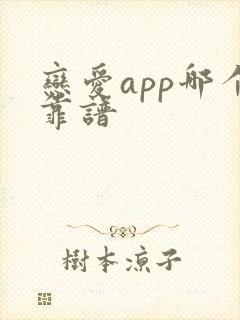 戀愛app哪个
靠譜
樹本凉子